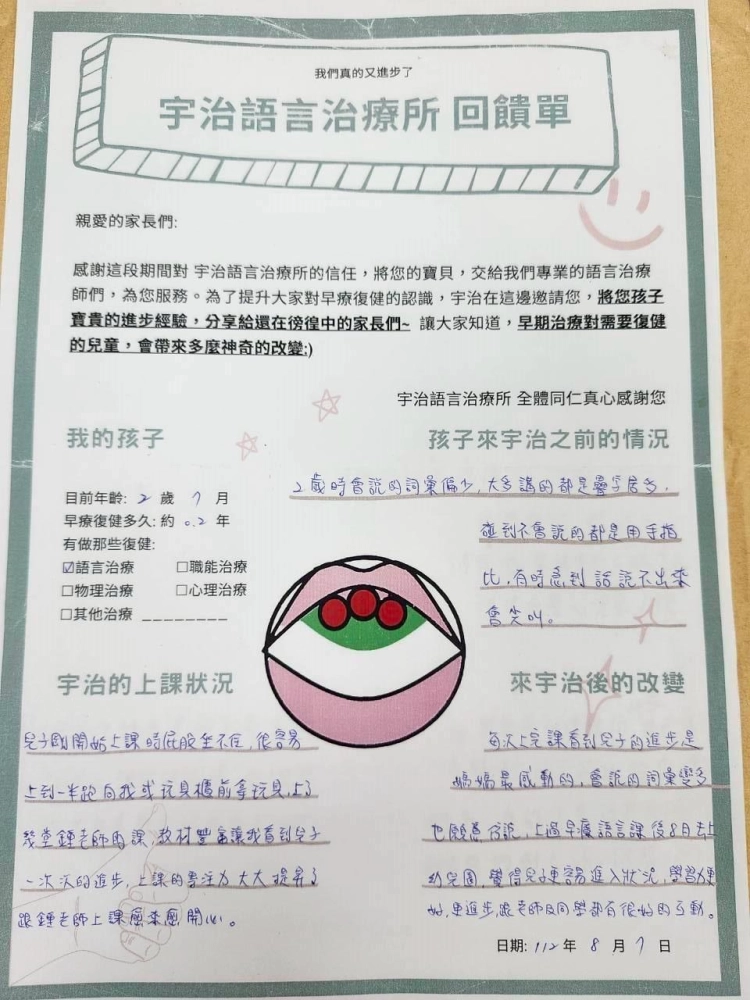 我們真的又進步了
宇治語言治療所 回饋單
親愛的家長們:
感謝這段期間對 宇治語言治療所的信任，將您的寶貝，交給我們專業的語言治療
師們，為您服務。為了提升大家對早療復健的認識，宇治在這邊邀請您，將您孩子
寶貴的進步經驗，分享給還在徬徨中的家長們~ 讓大家知道，早期治療對需要復健
的兒童，會帶來多麼神奇的改變:)
宇治語言治療所 全體同仁真心感謝您
我的孩子
目前年齡: 2 歲 7 月
早療復健多久: 約 0.2 年
有做那些復健:
☑語言治療 □職能治療
□物理治療 □心理治療
□其他治療 ________
孩子來宇治之前的情況
2歲時會說的詞彙偏少，大多講的都是疊字居多，
碰到不會說的都是用手指
比，有時急到話說不出來
會尖叫。
宇治的上課狀況
兒子剛開始上課時屁股坐不住，很容易
上到一半跑向我或玩具櫃前拿玩具，上了
幾堂鍾老師的課，教材豐富讓我看到兒子
一次次的進步，上課的專注力大大提昇了
跟鍾老師上課愈來愈開心。
來宇治後的改變
每次上完課看到兒子的進步是
媽媽最感動的，會說的詞彙變多
也願意仿說，上過早療語言課後8月去上
幼兒園，覺得兒子更容易進入狀況，學習力更
好，更進步，跟老師及同學都有很好的互動。
日期: 112 年 8 月 7 日